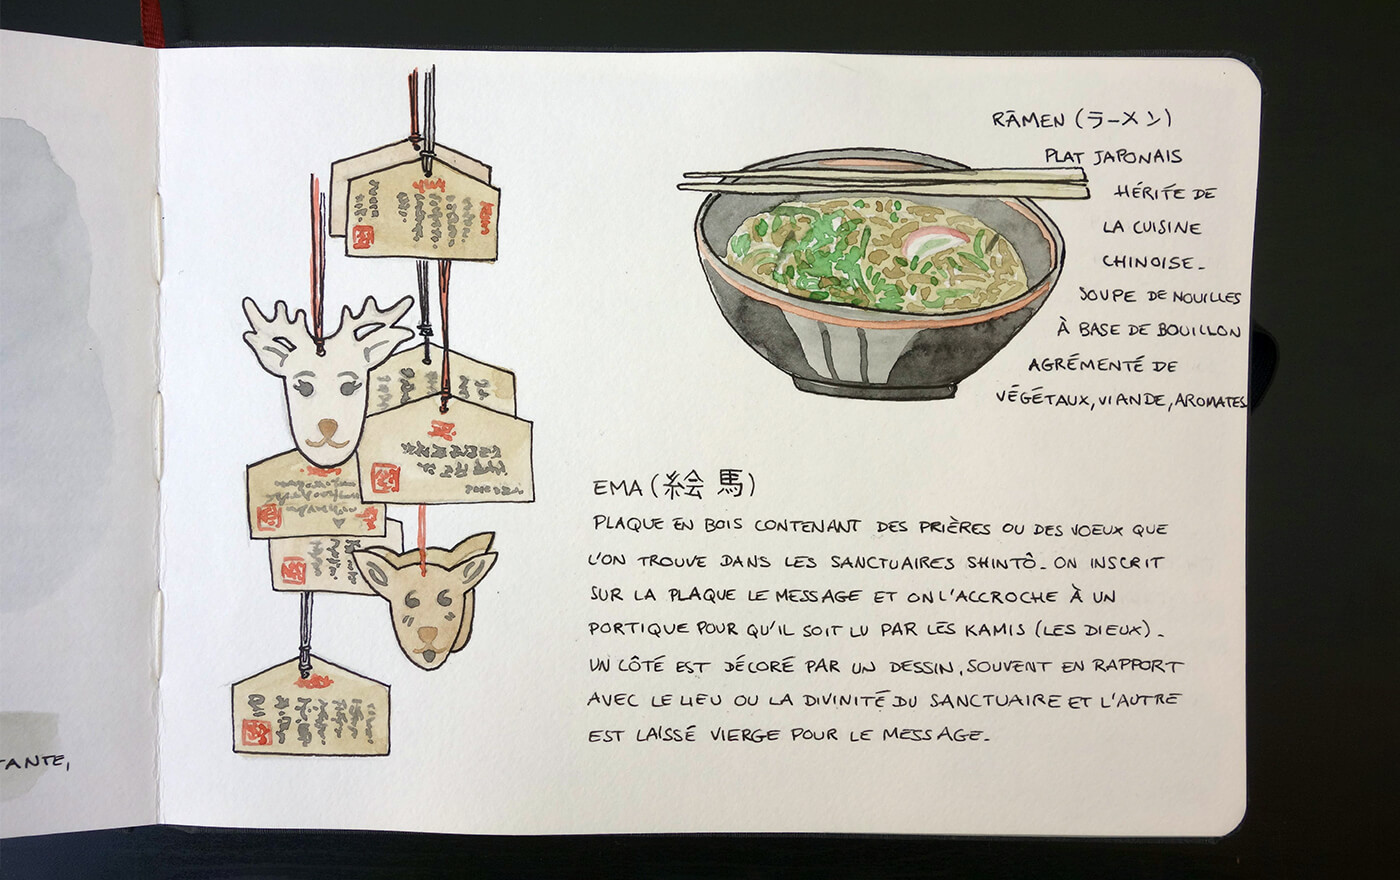 RĀMEN (ラーメン)
PLAT JAPONAIS
HÉRITÉ DE
LA CUISINE
CHINOISE.
SOUPE DE NOUILLES
À BASE DE BOUILLON
AGRÉMENTÉ DE
VÉGÉTAUX, VIANDE, AROMATES
EMA (絵馬)
PLAQUE EN BOIS CONTENANT DES PRIÈRES OU DES VOEUX QUE
L'ON TROUVE DANS LES SANCTUAIRES SHINTÔ. ON INSCRIT
SUR LA PLAQUE LE MESSAGE ET ON L'ACCROCHE À UN
PORTIQUE POUR QU'IL SOIT LU PAR LES KAMIS (LES DIEUX).
UN CÔTÉ EST DÉCORÉ PAR UN DESSIN, SOUVENT EN RAPPORT
AVEC LE LIEU OU LA DIVINITÉ DU SANCTUAIRE ET L'AUTRE
EST LAISSÉ VIERGE POUR LE MESSAGE.
TANTE,